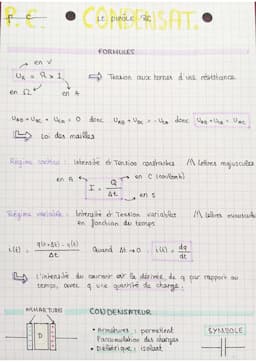 P.C. CONDENSAT.
LE DIPOLE RC
FORMULES
en V
UR = R x I ⇒ Tension aux bornes d'une résistance.
en Ω en A
UAB + UBC + UCA = 0 donc UAB + UBC = - UCA donc UAB + UBC = UAC
Loi des mailles
Régime continu : Intensité et Tension constantes /!\ lettres majuscules
en A I = Q/Δt en C (coulomb)
en s
Régime variable : Intensité et Tension variables /!\ lettres minuscules
en fonction du temps
i(t) = q(t+Δt) - q(t) / Δt Quand Δt → 0 : i(t) = dq/dt
L'intensité du courant est la dérivée de q par rapport au
temps, avec q une quantité de charge.
ARMATURES
CONDENSATEUR
D
• Armatures : permettent
l'accumulation des charges
• Diélectrique : isolant
SYMBOLE